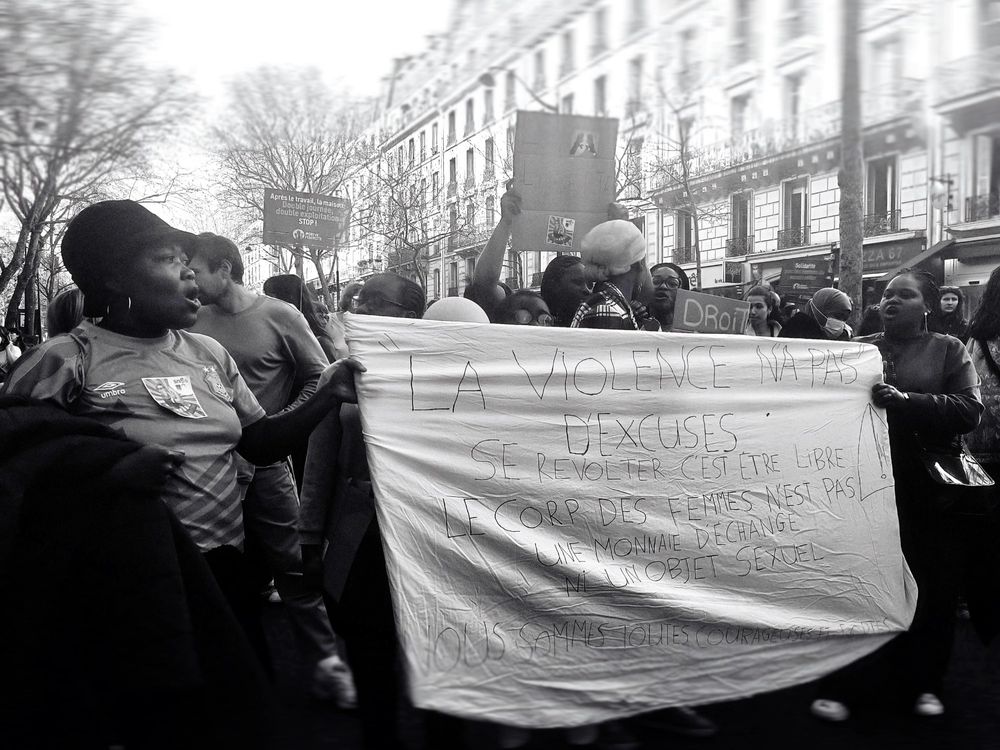 Après le travail, la maison:
Locble journée,
double exploitation
STOP !
DROIT
Solidarité
ZZA 67
umbro
"LA VIOLENCE N'A PAS
D'EXCUSES.
SE REVOLTER C'EST ÊTRE LIBRE
LE CORP DES FEMMES N'EST PAS
UNE MONNAIE D'ÉCHANGE
NI UN OBJET SEXUEL
NOUS SOMMES TOUTES COURAGEUSES